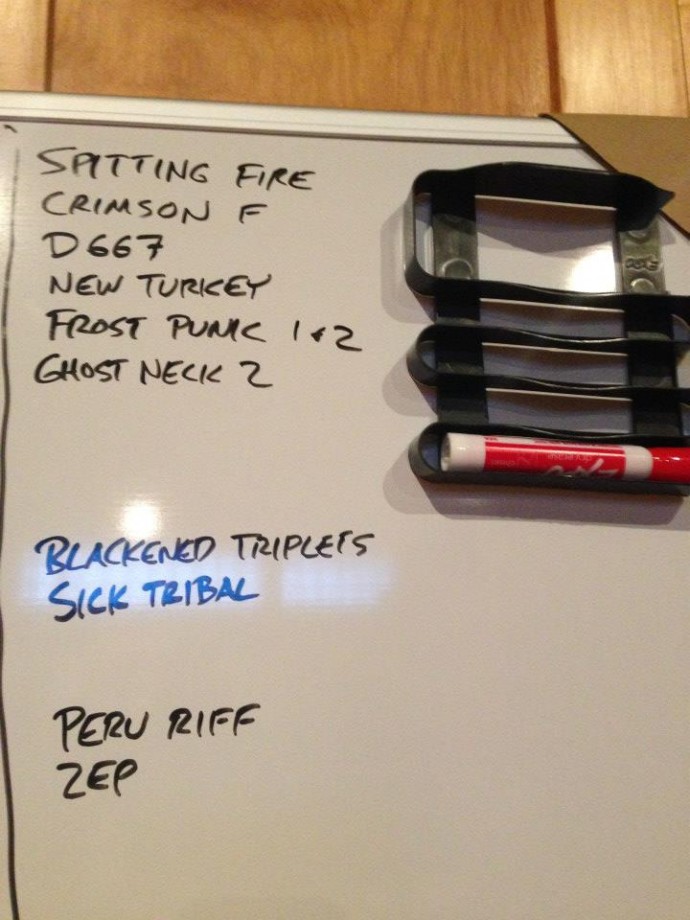 SPITTING FIRE
CRIMSON F
D667
NEW TURKEY
FROST PUNK 1+2
GHOST NECK 2
BLACKENED TRIPLETS
SICK TRIBAL
PERU RIFF
ZEP